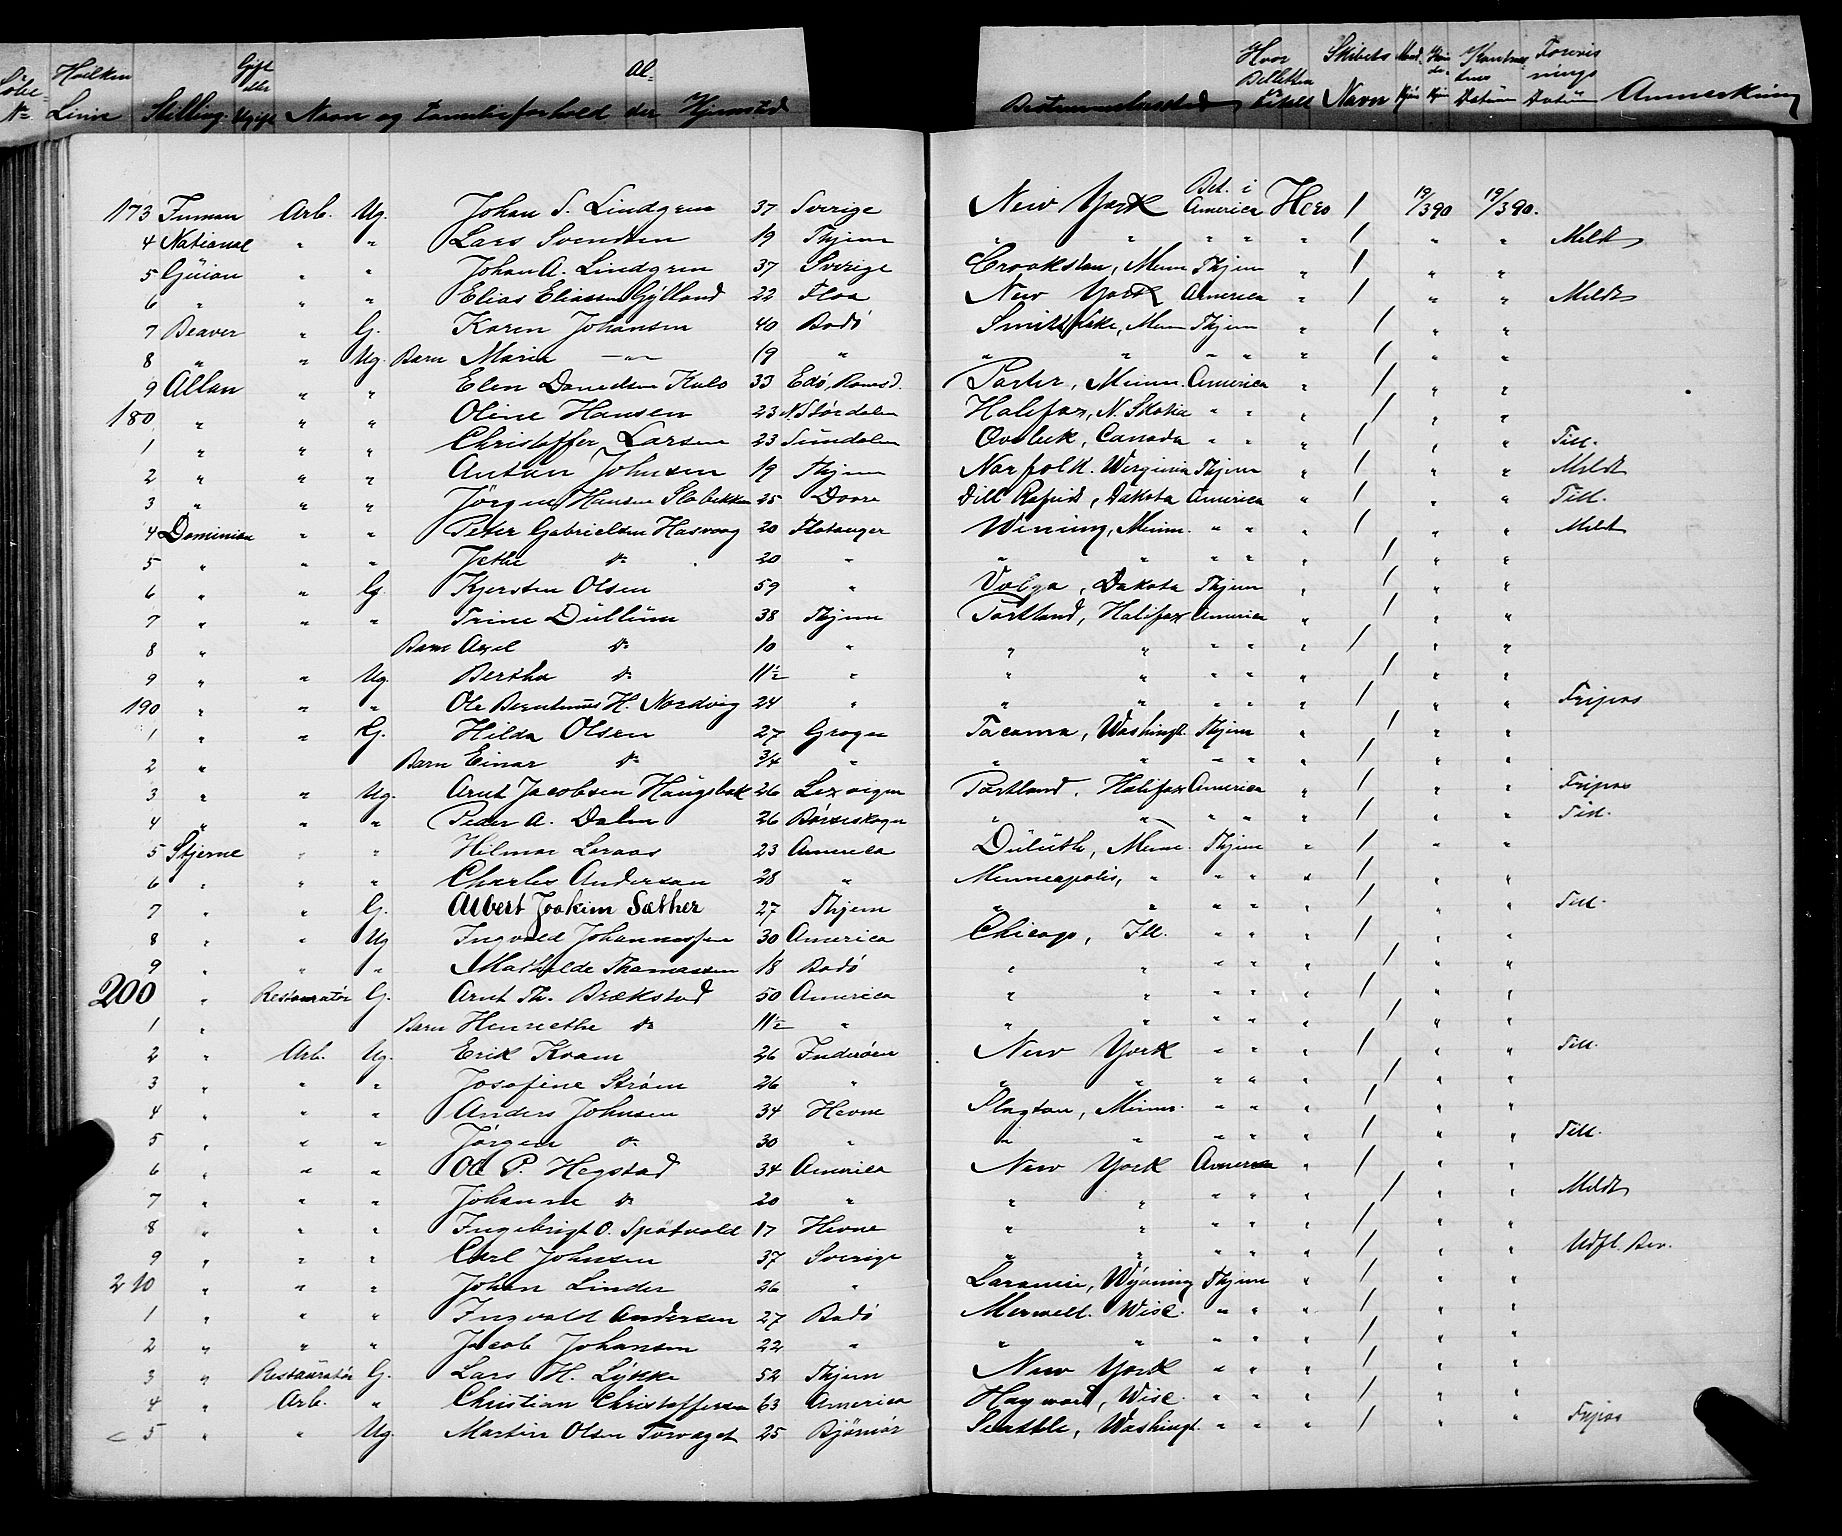 Løbe- No Hvilken Linie Stilling Gift eller Ugift Navn og Familieforhold Al- der Hjemsted Bestemmelsessted Hvor Billetten er betalt Skibets Navn Mand- Kjøn Kvin- de- Kjøn Kontrak- tens Datum Forevis nings Datum Anmerkning
173 Inman Arb. Ug. Johan S. Lindgren 37 Sverige New York Bet. i America Hero / 19/3 90 19/3 90.
4 National " " Lars Svendsen 19 Thjem " " " " " / " " Meldt
5 Guion " " Johan A. Lindgren 37 Sverige Crookston, Minn Thjem " / " "
6 " " " Elias Eliassen Gylland 22 Floa New York America " / " " Meldt
7 Beaver " G. Karen Johansen 40 Bodö Smiths Lake, Minn Thjem " / " "
8 " " Ug. Barn Marie —"— 19 " " " " " " / " "
9 Allan " " Elen Danielsen Kulö 33 Edö, Romsd. Porter, Minn. America " / " "
180 " " " Oline Hansen 23 N. Stördalen Halifax, N. Skotia " " " / " "
1 " " " Christoffer Larsen 23 Sundalen Qvebek, Canada " " " / " " Till.
2 " " " Anton Johnsen 19 Thjem Norfolk. Werginia Thjem " / " " Meldt
3 " " " Jörgen Hansen Slobekken 25 Dovre Dill Rapids, Dakota America " / " " Till.
4 Dominion " " Peter Gabrielsen Hasvog 20 Flatanger Wining, Minn. " " " / " " Meldt
5 " " " Jethe do 20 " " " " " " / " "
6 " " G. Kjersten Olsen 59 " Volga, Dakota Thjem " / " "
7 " " " Trine Dullum 38 Thjem Portland, Halifax America " / " "
8 " Barn Axel do 10 " " " " " " / " "
9 " " Ug. Bertha do 11½ " " " " " " / " "
190 " " " Ole Berntinus H. Nordvig 24 " " " " " / " " Fripas
1 " " G. Hilda Olsen 27 Grogn Tacoma, Washingt. Thjem " / " "
2 " Barn Einar do 3/4 " " " " " " / " "
3 " " Ug. Arnt Jacobsen Haugsbak 26 Lexvigen Portland. Halifax America " / " " Fripas
4 " " " Peder A. Dalen 26 Börseskogn " " " " " / " " Till.
5 Stjerne " " Hilmar Loraas 23 America Duluth, Minn. Thjem " / " "
6 " " " Charles Anderson 28 " Minneapolis, " " " " / " "
7 " " G. Albert Joakim Sæther 27 Thjem " " " " " / " " Till.
8 " " Ug Ingvald Johannessen 30 America Chicago, Ill. " " " / " "
9 " " " Mathilde Thomassen 18 Bodö " " " " " / " "
200 " Restauratör G. Arnt Th. Brækstad 50 America " " " " " / " "
1 " Barn Henriethe do 11½ " " " " " " / " "
2 " Arb. Ug. Erik Kvam 26 Inderöen New York " " " / " " Till.
3 " " " Josefine Ström 26 " " " " " " / " "
4 " " " Anders Johnsen 34 Hevne Slayton, Minn. " " " / " "
5 " " " Jörgen do 30 " " " " " " / " " Till.
6 " " " Ole P. Hegstad 34 America New York America " / " "
7 " " " Johanne do 20 " " " " " " / " " Meldt
8 " " " Ingebrigt O. Spötvold 17 Hevne " " " " " / " "
9 " " " Carl Johnsen 37 Sverige " " " " " / " " Udfl. Bev.
210 " " " Johan Linder 26 " Laramie, Wyoming Thjem " / " "
1 " " " Ingvald Andersen 27 Bodö Merwell. Wisc. " " " / " "
2 " " " Jacob Johansen 22 " " " " " " / " "
3 " Restauratör G. Lars H. Lykke 52 Thjem New York " " " / " "
4 " Arb. " Christian Christoffersen 63 America Hayward, Wisc. " " " / " "
5 " " Ug. Martin Olsen Torvaget 25 Björnör Seatthle, Washingt. " " " / " " Fripas